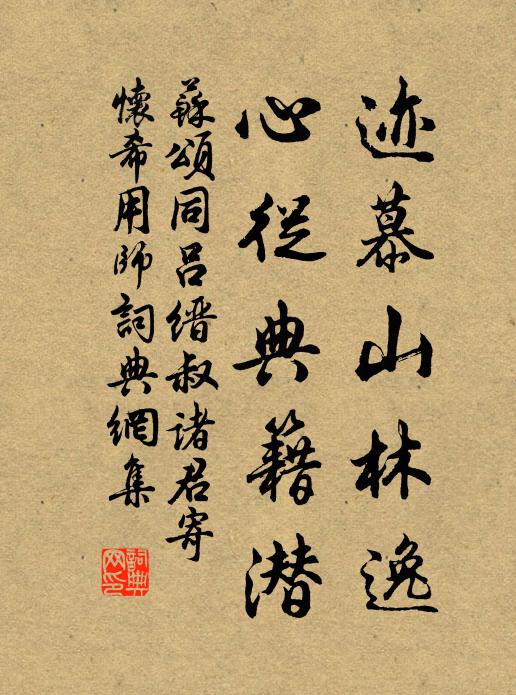 迹慕山林逸
心從典籍潜
蘇頌同呂缙叔诸君寄
懷希用師詞典網集
詞典网印